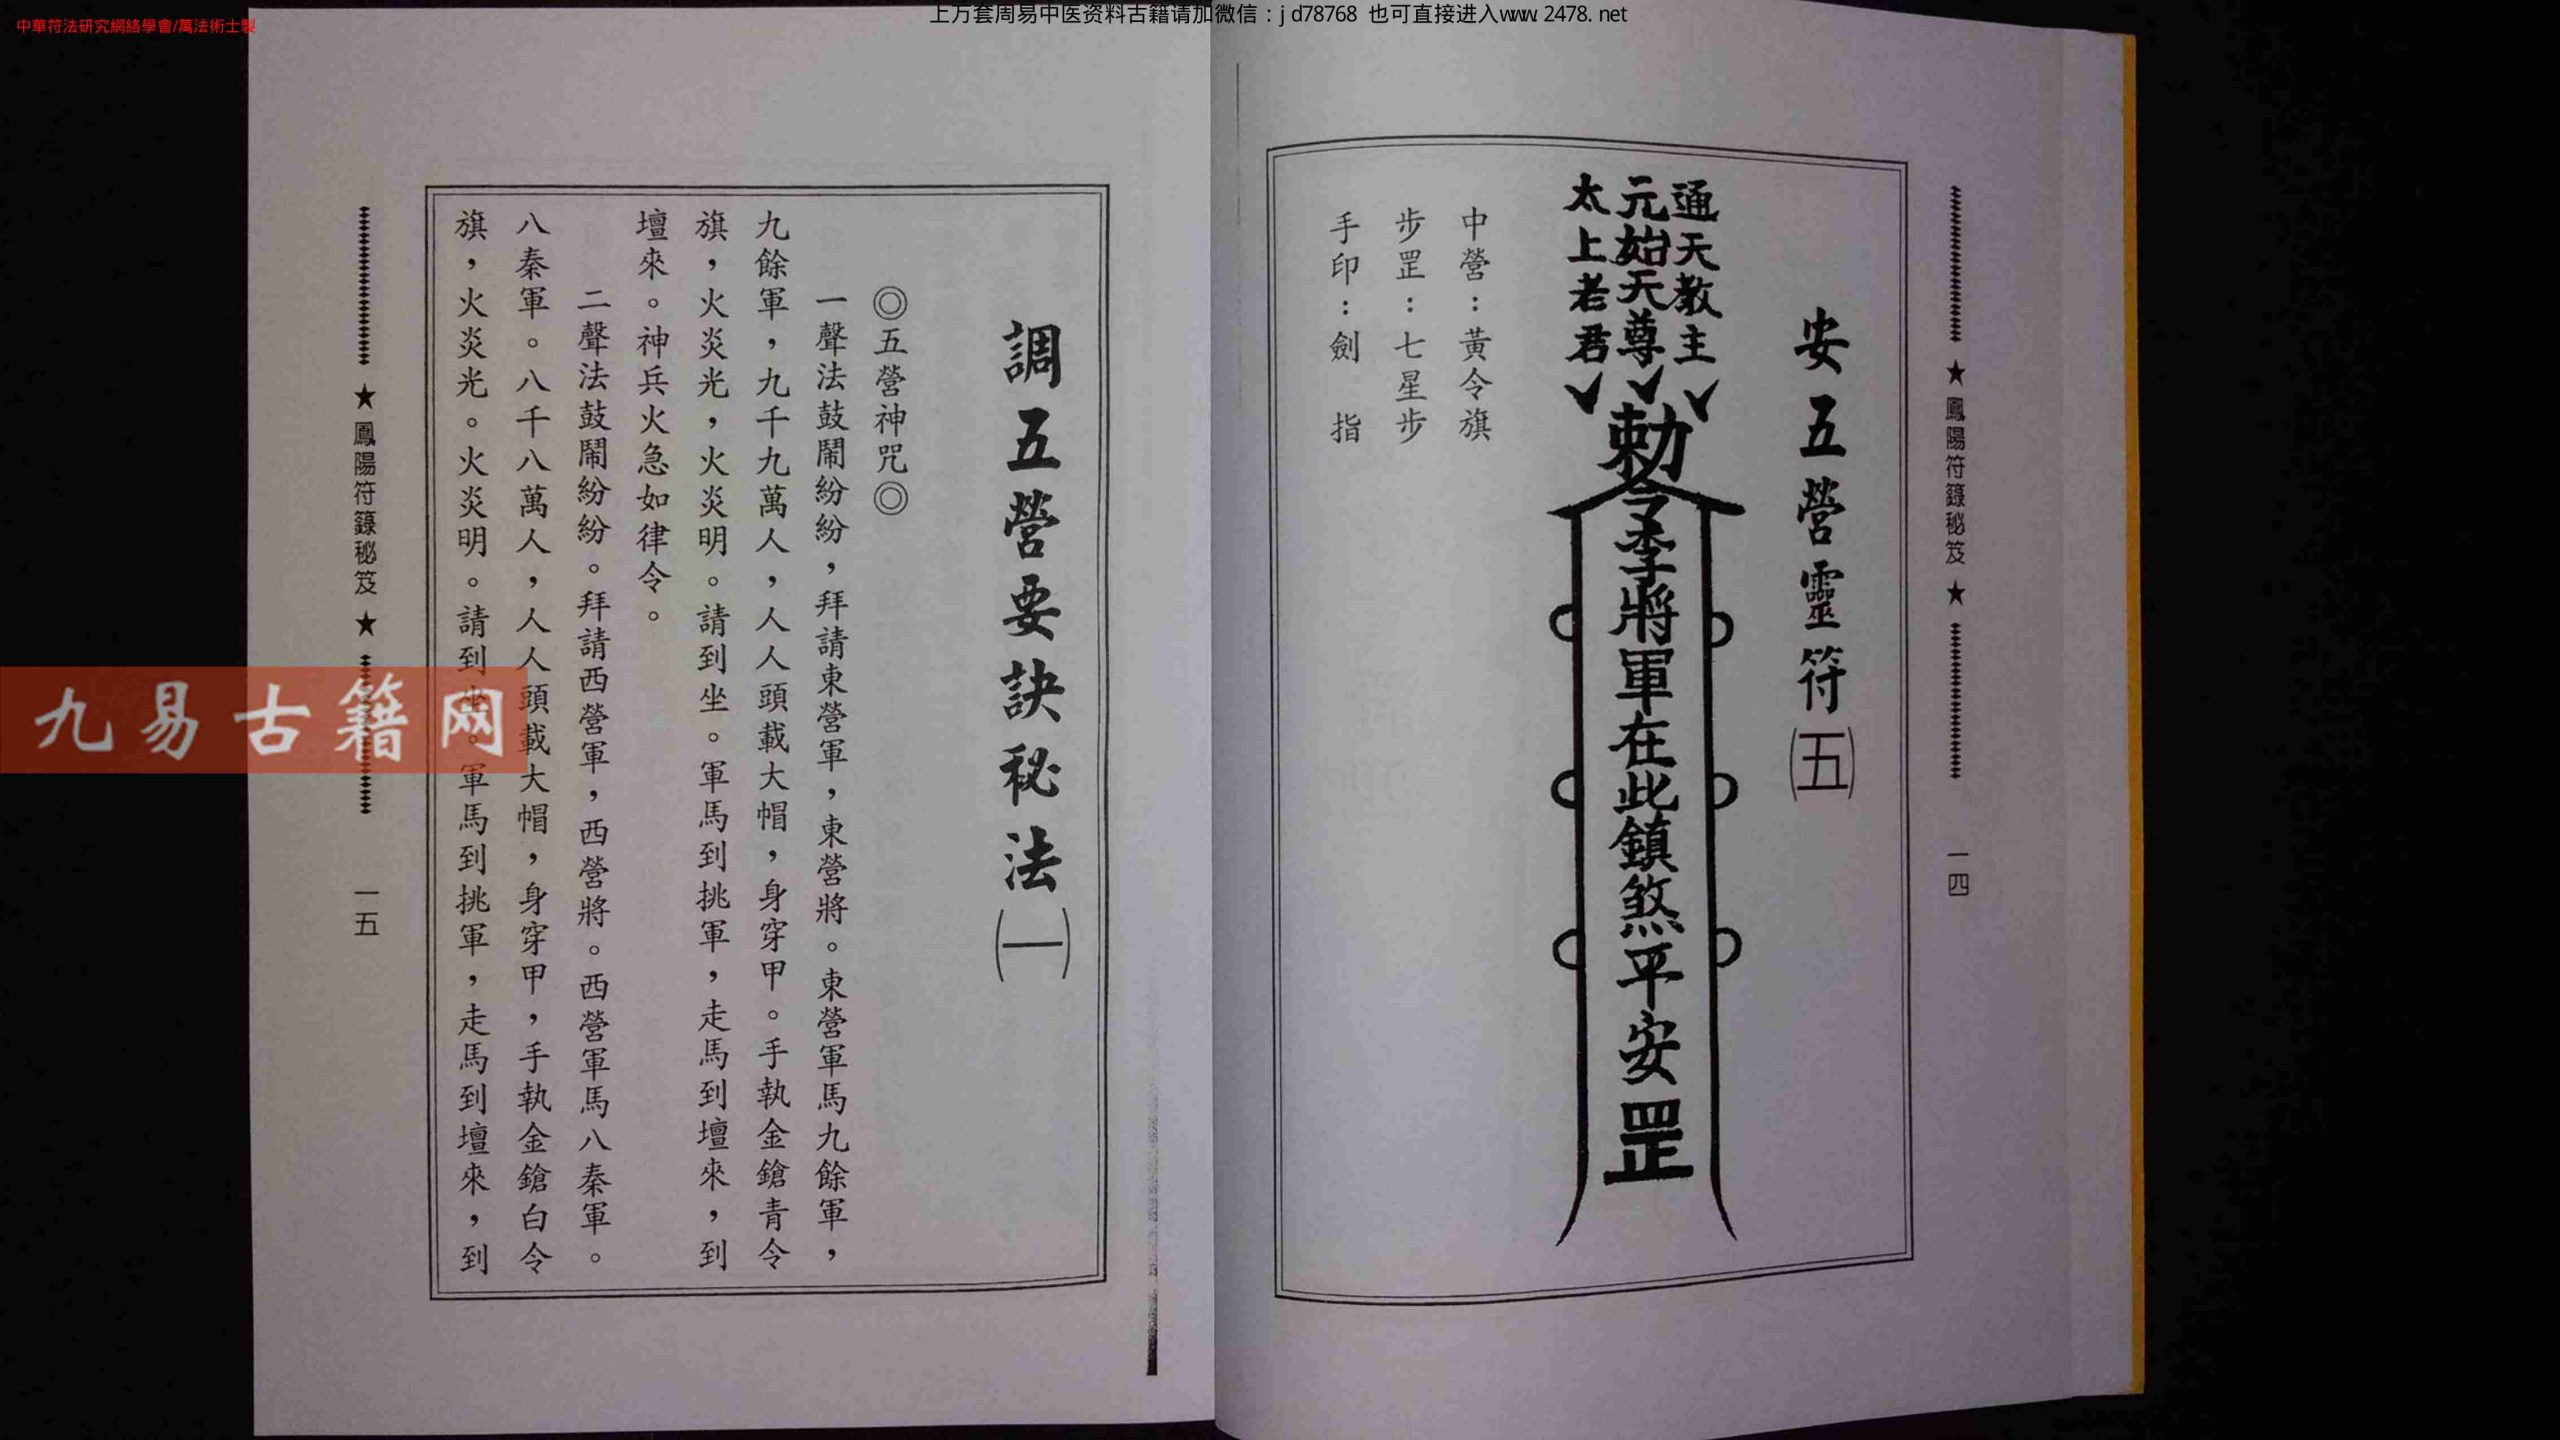 中華符法研究網絡學會/萬法術士製
上万套周易中医资料古籍请加微信：jd78768 也可直接进入www.2478.net
★鳳陽符籙秘笈★
一四
安五營靈符㈤
通天教主
元始天尊
太上老君
勅令李將軍在此鎮煞平安罡
中營：黃令旗
步罡：七星步
手印：劍 指
調五營要訣秘法㈠
◎五營神咒◎
一聲法鼓鬧紛紛，拜請東營軍，東營將。東營軍馬九餘軍，
九餘軍，九千九萬人，人人頭載大帽，身穿甲。手執金鎗青令
旗，火炎光，火炎明。請到坐。軍馬到挑軍，走馬到壇來，到
壇來。神兵火急如律令。
二聲法鼓鬧紛紛。拜請西營軍，西營將。西營軍馬八秦軍。
八秦軍。八千八萬人，人人頭載大帽，身穿甲，手執金鎗白令
旗，火炎光。火炎明。請到坐。軍馬到挑軍，走馬到壇來，到
★鳳陽符籙秘笈★
一五
九易古籍网